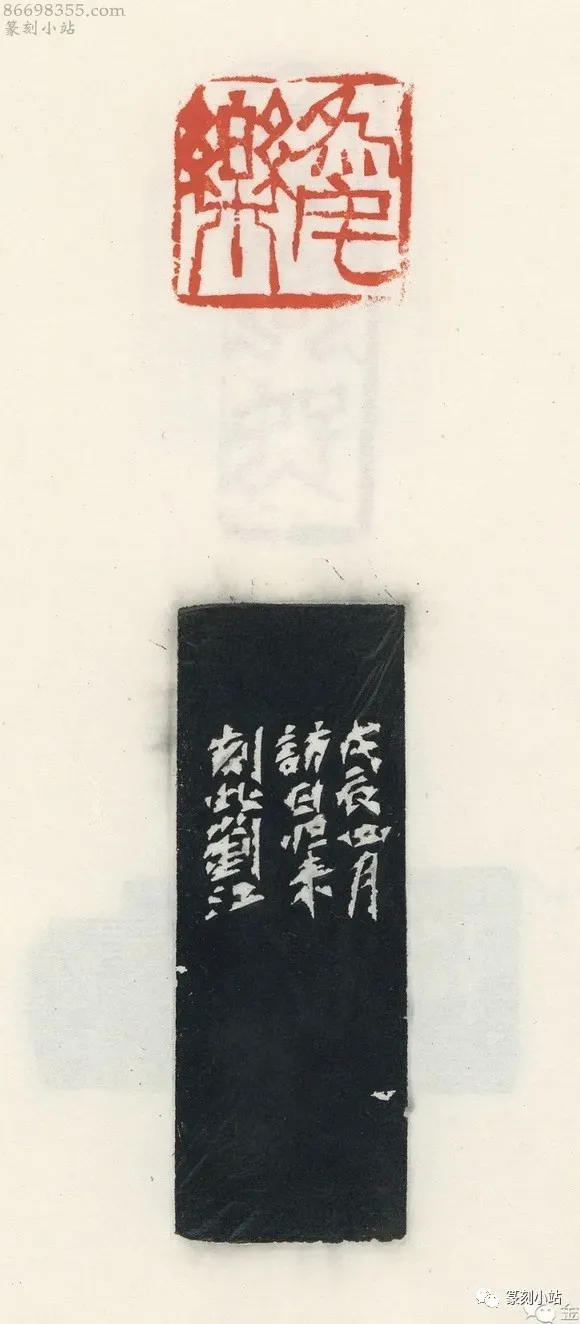 86698355.com
篆刻小站
樂
戊辰四月
訪日归来
刻此劉江
篆刻小站
金